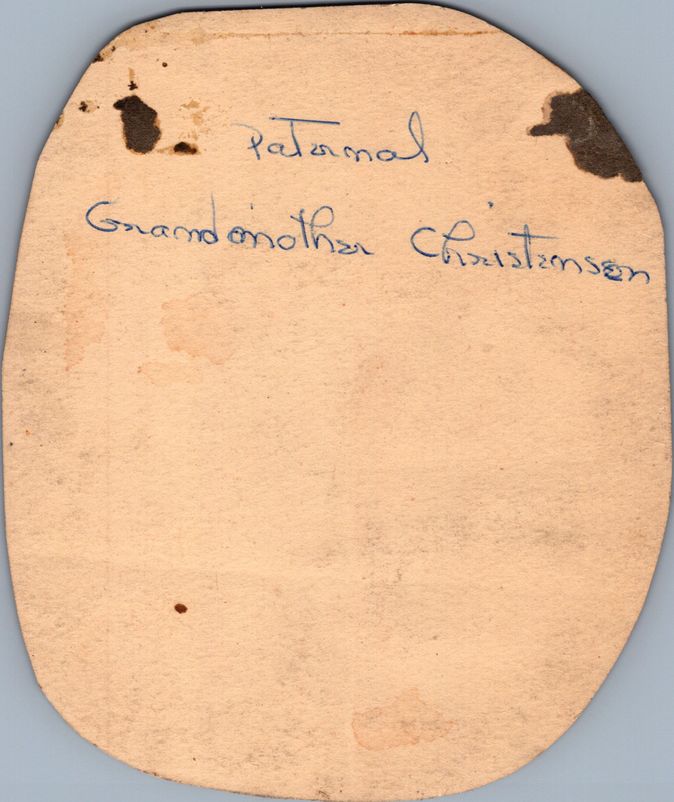 Paternal
Grandmother Christensen